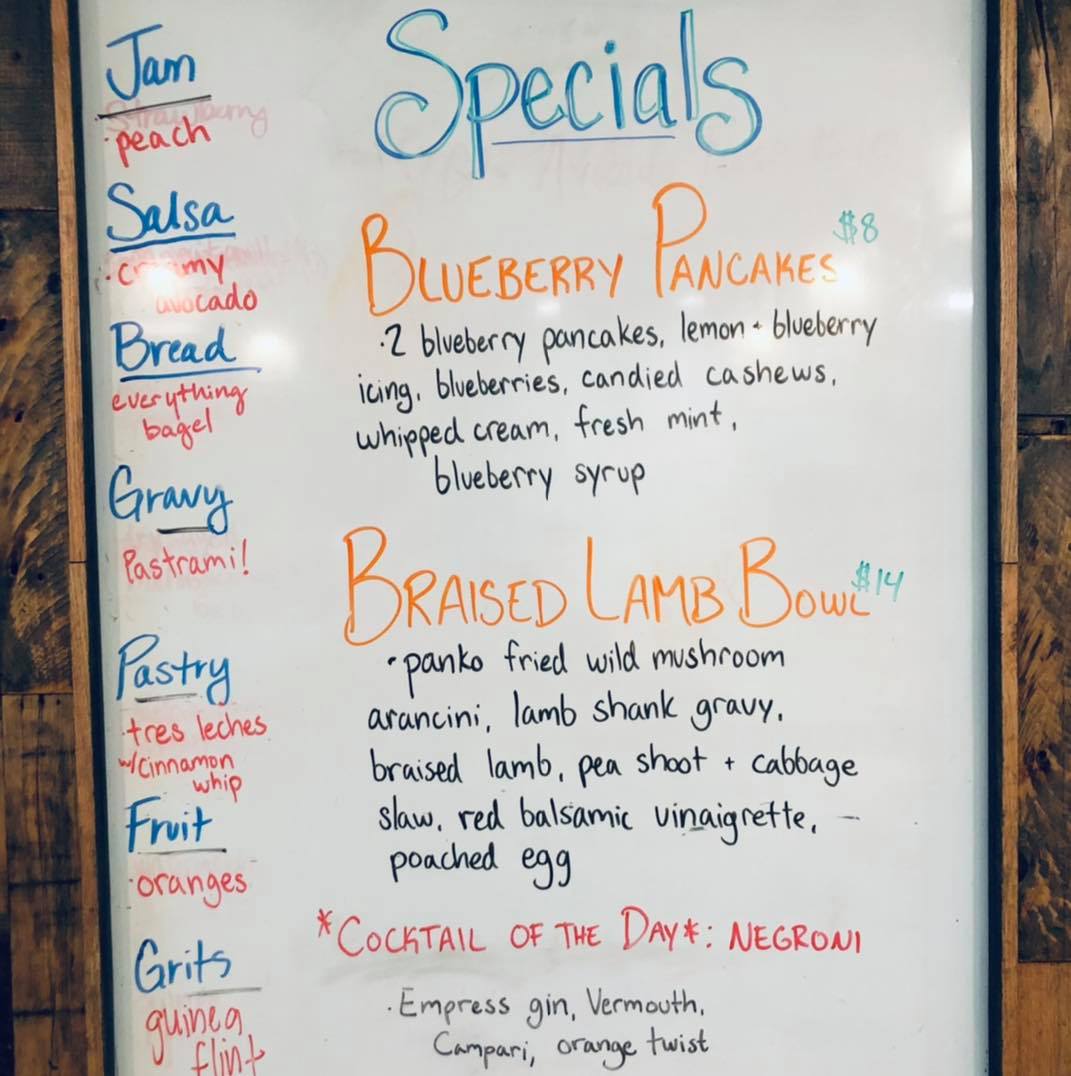 Jam
Strawberry
·peach
Salsa
·creamy
avocado
Bread
everything
bagel
Gravy
Pastrami!
Pastry
·tres leches
w/cinnamon
whip
Fruit
·oranges
Grits
guinea
flint
Specials
BLUEBERRY PANCAKES $8
·2 blueberry pancakes, lemon + blueberry
icing, blueberries, candied cashews,
whipped cream, fresh mint,
blueberry syrup
BRAISED LAMB BOWL $14
·panko fried wild mushroom
arancini, lamb shank gravy,
braised lamb, pea shoot + cabbage
slaw, red balsamic vinaigrette,
poached egg
*COCKTAIL OF THE DAY*: NEGRONI
·Empress gin, Vermouth,
Campari, orange twist